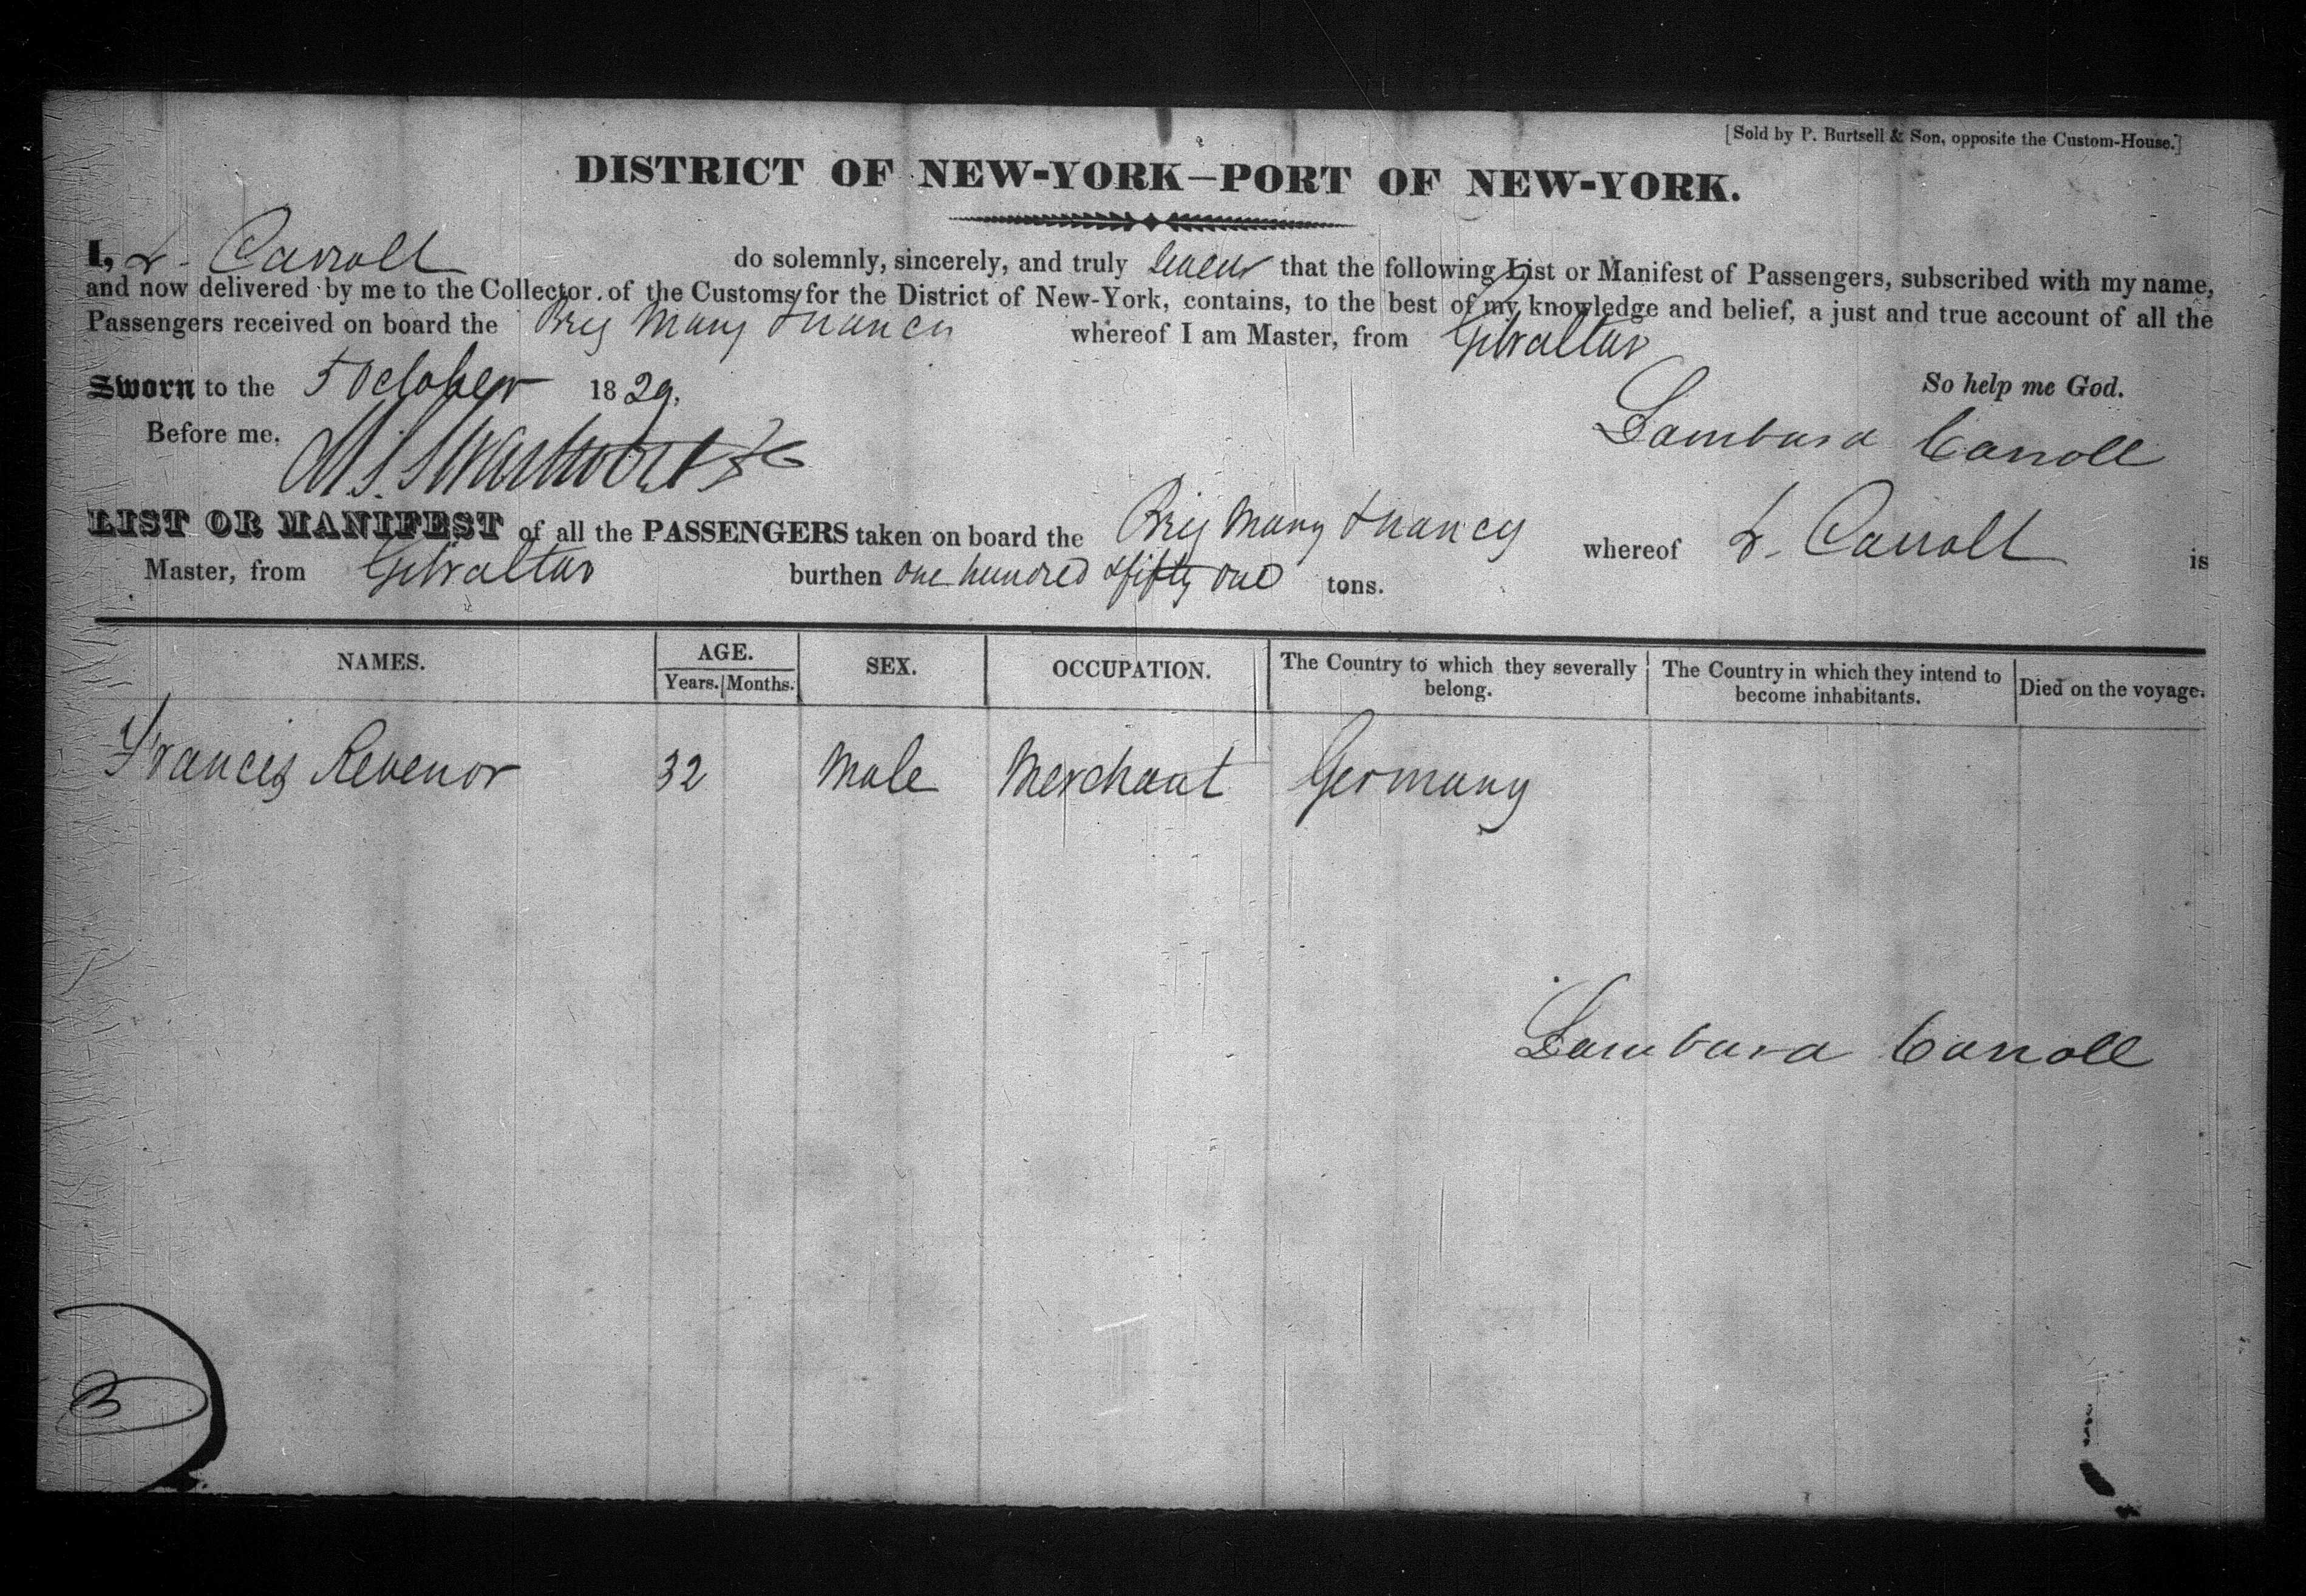 [Sold by P. Burtsell & Son, opposite the Custom-House.]
DISTRICT OF NEW-YORK—PORT OF NEW-YORK.
I, L. Carroll do solemnly, sincerely, and truly swear that the following List or Manifest of Passengers, subscribed with my name,
and now delivered by me to the Collector of the Customs for the District of New-York, contains, to the best of my knowledge and belief, a just and true account of all the
Passengers received on board the Brig Mary & Nancy whereof I am Master, from Gibraltar
Sworn to the 5 October 1829. So help me God.
Before me, Carroll
LIST OR MANIFEST of all the PASSENGERS taken on board the Brig Mary & Nancy whereof L. Carroll is
Master, from Gibraltar burthen one hundred & fifty one tons.
NAMES. AGE. SEX. OCCUPATION. The Country to which they severally belong. The Country in which they intend to become inhabitants. Died on the voyage.
Years. Months.
Francis Revenor 32 Male Merchant Germany
Carroll